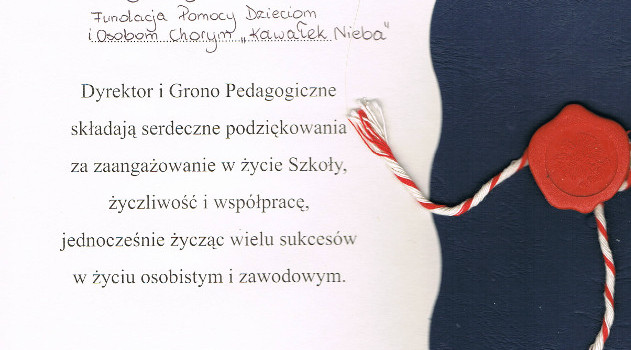 Fundacja Pomocy Dzieciom
i Osobom Chorym „Kawałek Nieba"
Dyrektor i Grono Pedagogiczne
składają serdeczne podziękowania
za zaangażowanie w życie Szkoły,
życzliwość i współpracę,
jednocześnie życząc wielu sukcesów
w życiu osobistym i zawodowym.